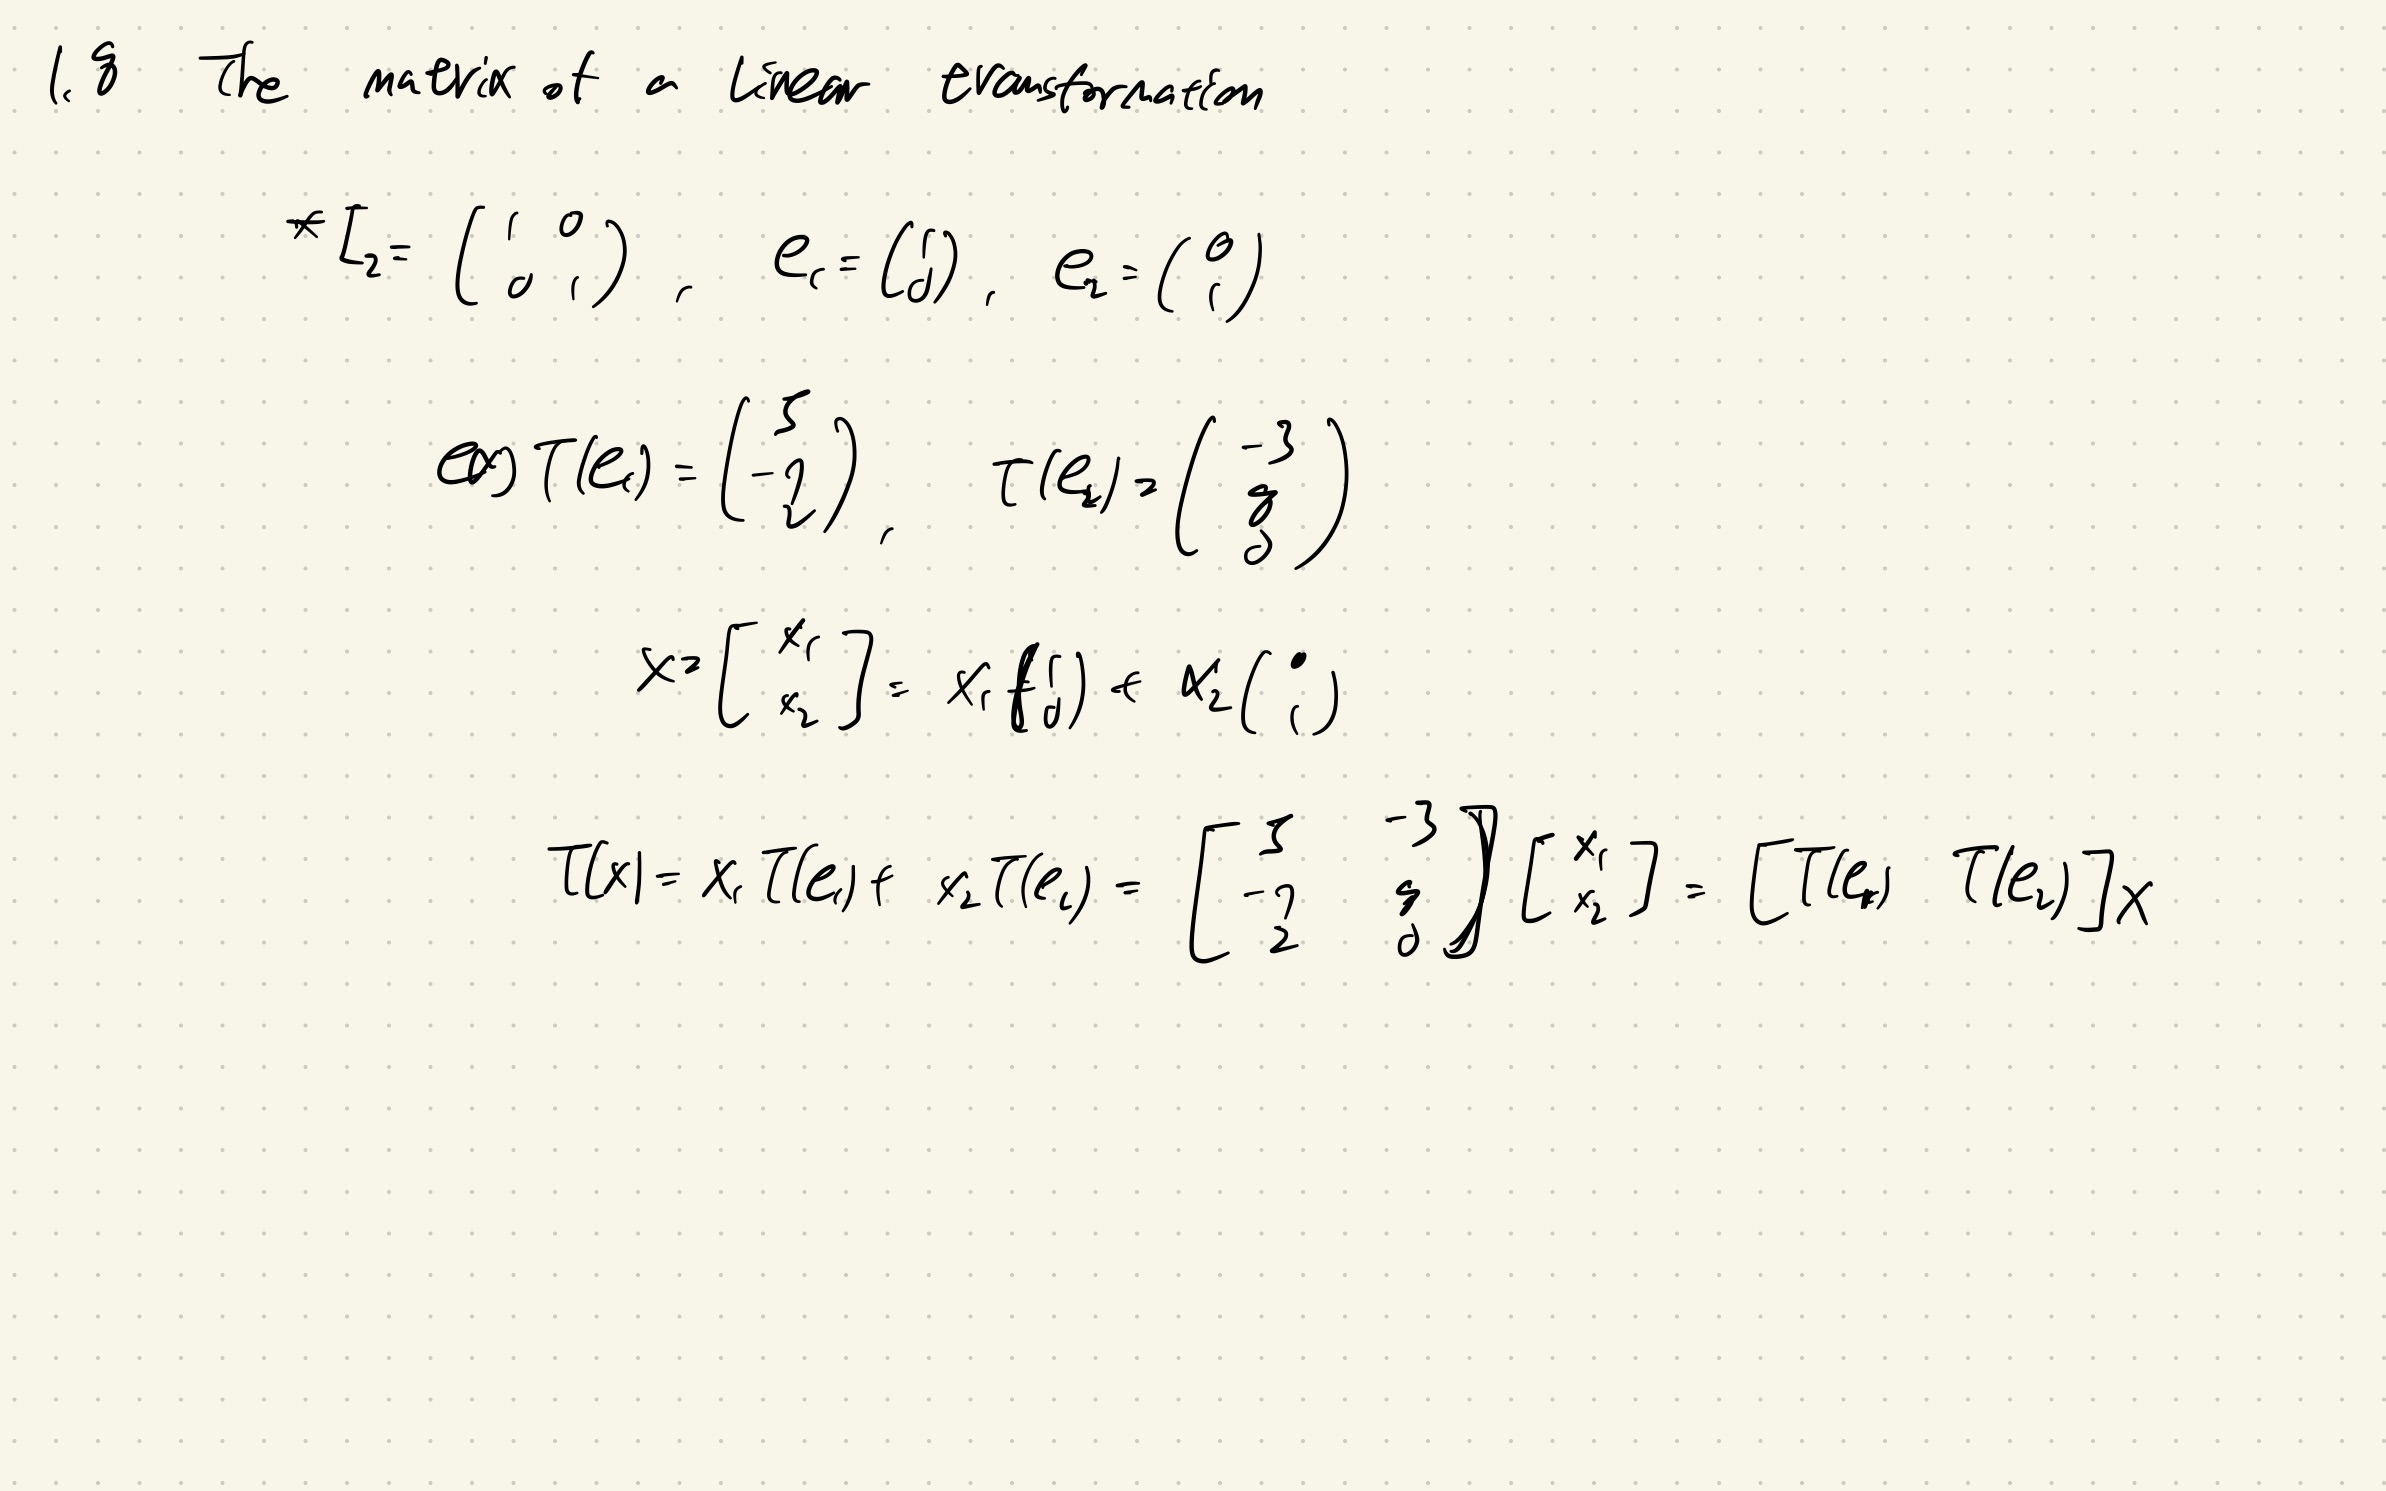 1.8 The matrix of a Linear transformation
* I₂ = (1 0; 0 1), e₁ = (1; 0), e₂ = (0; 1)
T(e₁) = (5; -7; 2), T(e₂) = (-3; 8; 0)
x = [x₁; x₂] = x₁(1; 0) + x₂(0; 1)
T(x) = x₁T(e₁) + x₂T(e₂) = [5 -3; -7 8; 2 0][x₁; x₂] = [T(e₁) T(e₂)]x